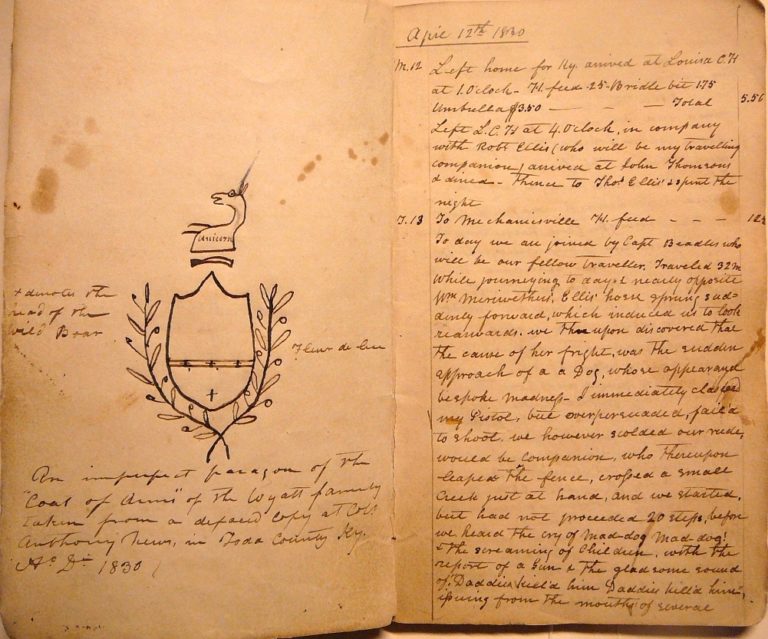 Unicorn
+ denotes the
head of the
Wild Boar
Fleur de lis
An imperfect paragon of the
"Coat of Arms" of the Wyatt family
taken from a defaced copy at Col
Anthony News, in Todd County Ky.
Ao Di 1830
Apri 12th 1830
M.12 Left home for Ky. arived at Louisa C.H
at 1.Oclock - H. feed 25 - Bridle bit 175
Umbrella $3.50 — — — Total 5.50
Left L.C.H at 4.Oclock, in company
with Robt Ellis (who will be my travelling
companion) arrived at John Thomsons
& dined - thence to Thos Ellis' & spent the
night
T.13 To Mechanicsville H. feed - - - 12½
To day we are joined by Capt Beadles who
will be our fellow traveller. Traveled 32 m
While journeying to day & nearly opposite
Wm Meriwethers, Ellis' horse sprung sud-
dinly forward, which induced us to look
rearwards. we thereupon discovered that
the cause of her fright, was the sudden
approach of a a Dog, whose appearance
bespoke madness - I immediately
my Pistol, but overpersuaded, fail'd
to shoot. we however scolded our rude,
would be companion, who thereupon
leaped the fence, crossed a small
Creek just at hand, and we started,
but had not proceeded 20 steps, before
we heard the cry of Mad-dog Mad-dog!
& the screaming of Children, with the
report of a Gun & the glad some sound
of "Daddies kill'd him Daddies kill'd him",
issuing from the mouths of several